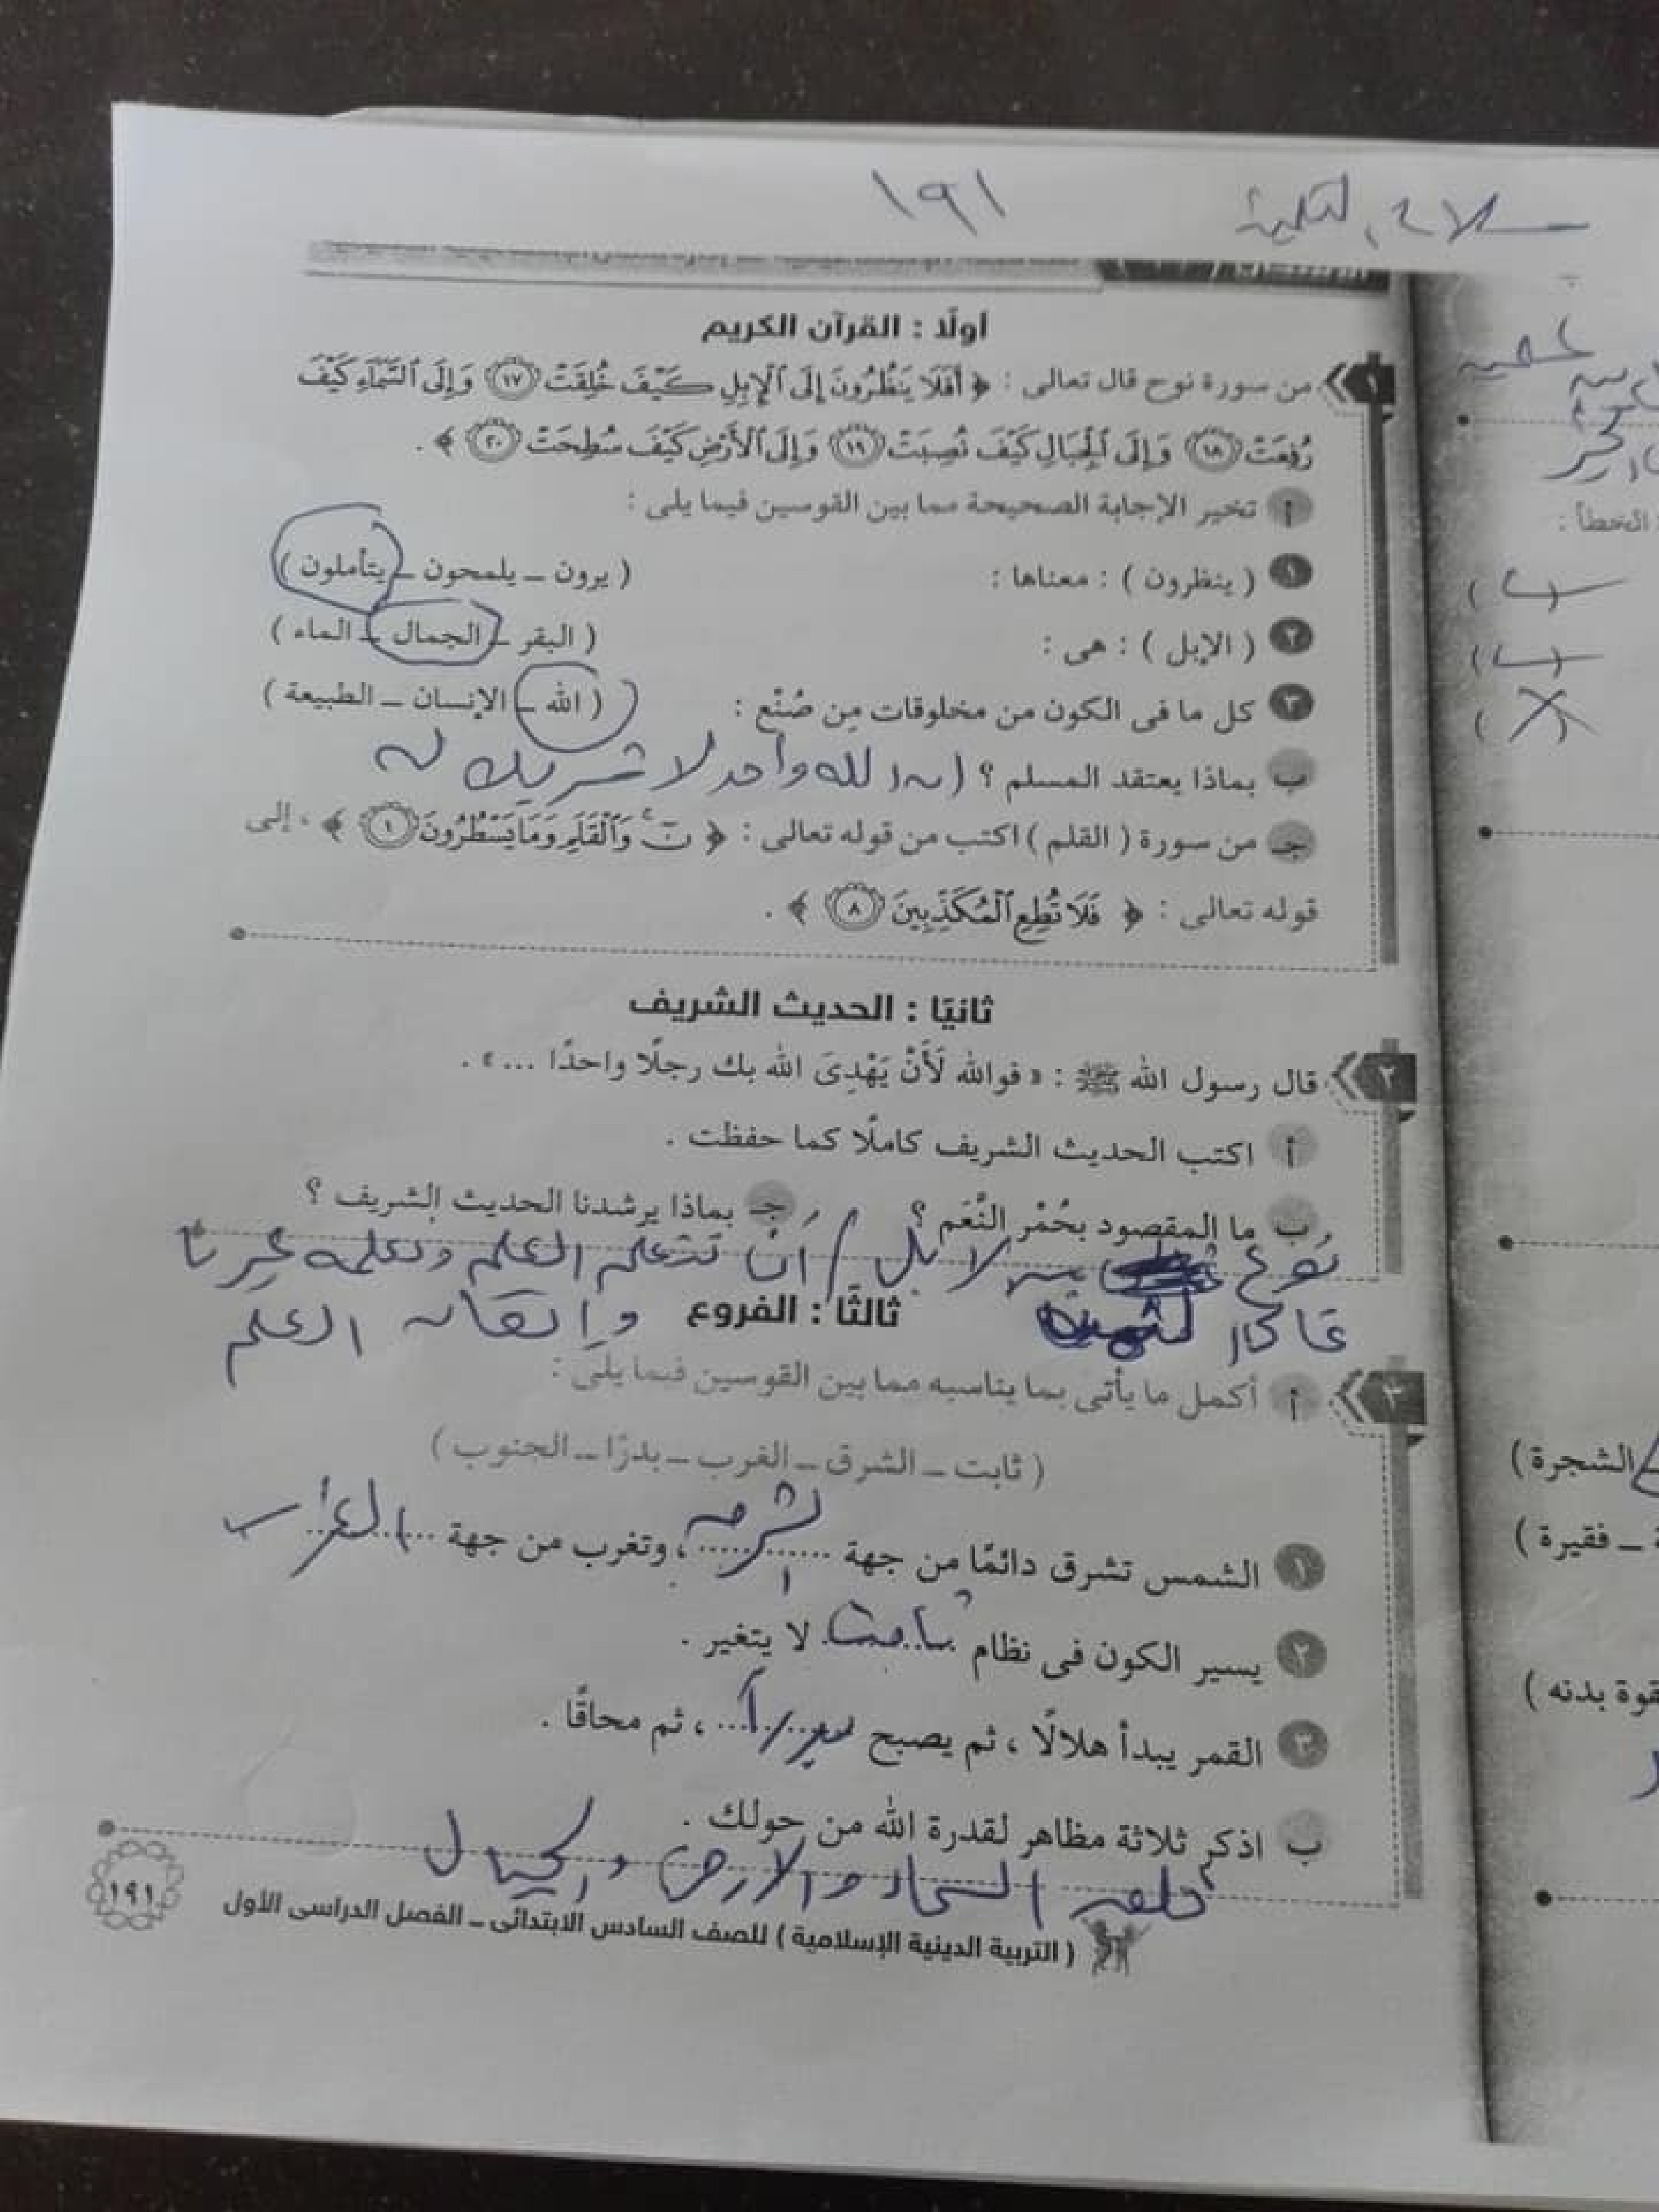 ١٩١
أولًا : القرآن الكريم
١ من سورة نوح قال تعالى : ﴿ أَفَلَا يَنظُرُونَ إِلَى ٱلْإِبِلِ كَيْفَ خُلِقَتْ ١٧ وَإِلَى ٱلسَّمَآءِ كَيْفَ
رُفِعَتْ ١٨ وَإِلَى ٱلْجِبَالِ كَيْفَ نُصِبَتْ ١٩ وَإِلَى ٱلْأَرْضِ كَيْفَ سُطِحَتْ ٢٠ ﴾ .
أ تخير الإجابة الصحيحة مما بين القوسين فيما يلى :
١ ( ينظرون ) : معناها : ( يرون ــ يلمحون ــ يتأملون )
٢ ( الإبل ) : هى : ( البقر ــ الجمال ــ الماء )
٣ كل ما فى الكون من مخلوقات مِن صُنْع : ( الله ــ الإنسان ــ الطبيعة )
ب بماذا يعتقد المسلم ؟ الله واحد لا شريك له
جـ من سورة ( القلم ) اكتب من قوله تعالى : ﴿ نٓ وَٱلْقَلَمِ وَمَا يَسْطُرُونَ ١ ﴾ ، إلى
قوله تعالى : ﴿ فَلَا تُطِعِ ٱلْمُكَذِّبِينَ ٨ ﴾ .
ثانيًا : الحديث الشريف
٢ قال رسول الله ﷺ : « فوالله لَأَنْ يَهْدِىَ الله بك رجلًا واحدًا ... » .
أ اكتب الحديث الشريف كاملًا كما حفظت .
ب ما المقصود بحُمْر النَّعَم ؟ جـ بماذا يرشدنا الحديث الشريف ؟
نوع من الابل / أن نتعلم العلم ونعلمه غيرنا
وإتقان العلم
ثالثًا : الفروع
٣ أ أكمل ما يأتى بما يناسبه مما بين القوسين فيما يلى :
( ثابت ــ الشرق ــ الغرب ــ بدرًا ــ الجنوب )
١ الشمس تشرق دائمًا من جهة الشرق ، وتغرب من جهة الغرب
٢ يسير الكون فى نظام ثابت لا يتغير .
٣ القمر يبدأ هلالًا ، ثم يصبح بدراً ، ثم محاقًا .
ب اذكر ثلاثة مظاهر لقدرة الله من حولك .
خلق السماء والارض والجبال
( التربية الدينية الإسلامية ) للصف السادس الابتدائى ــ الفصل الدراسى الأول
١٩١
الخطأ :
الشجرة )
ــ فقيرة )
قوة بدنه )